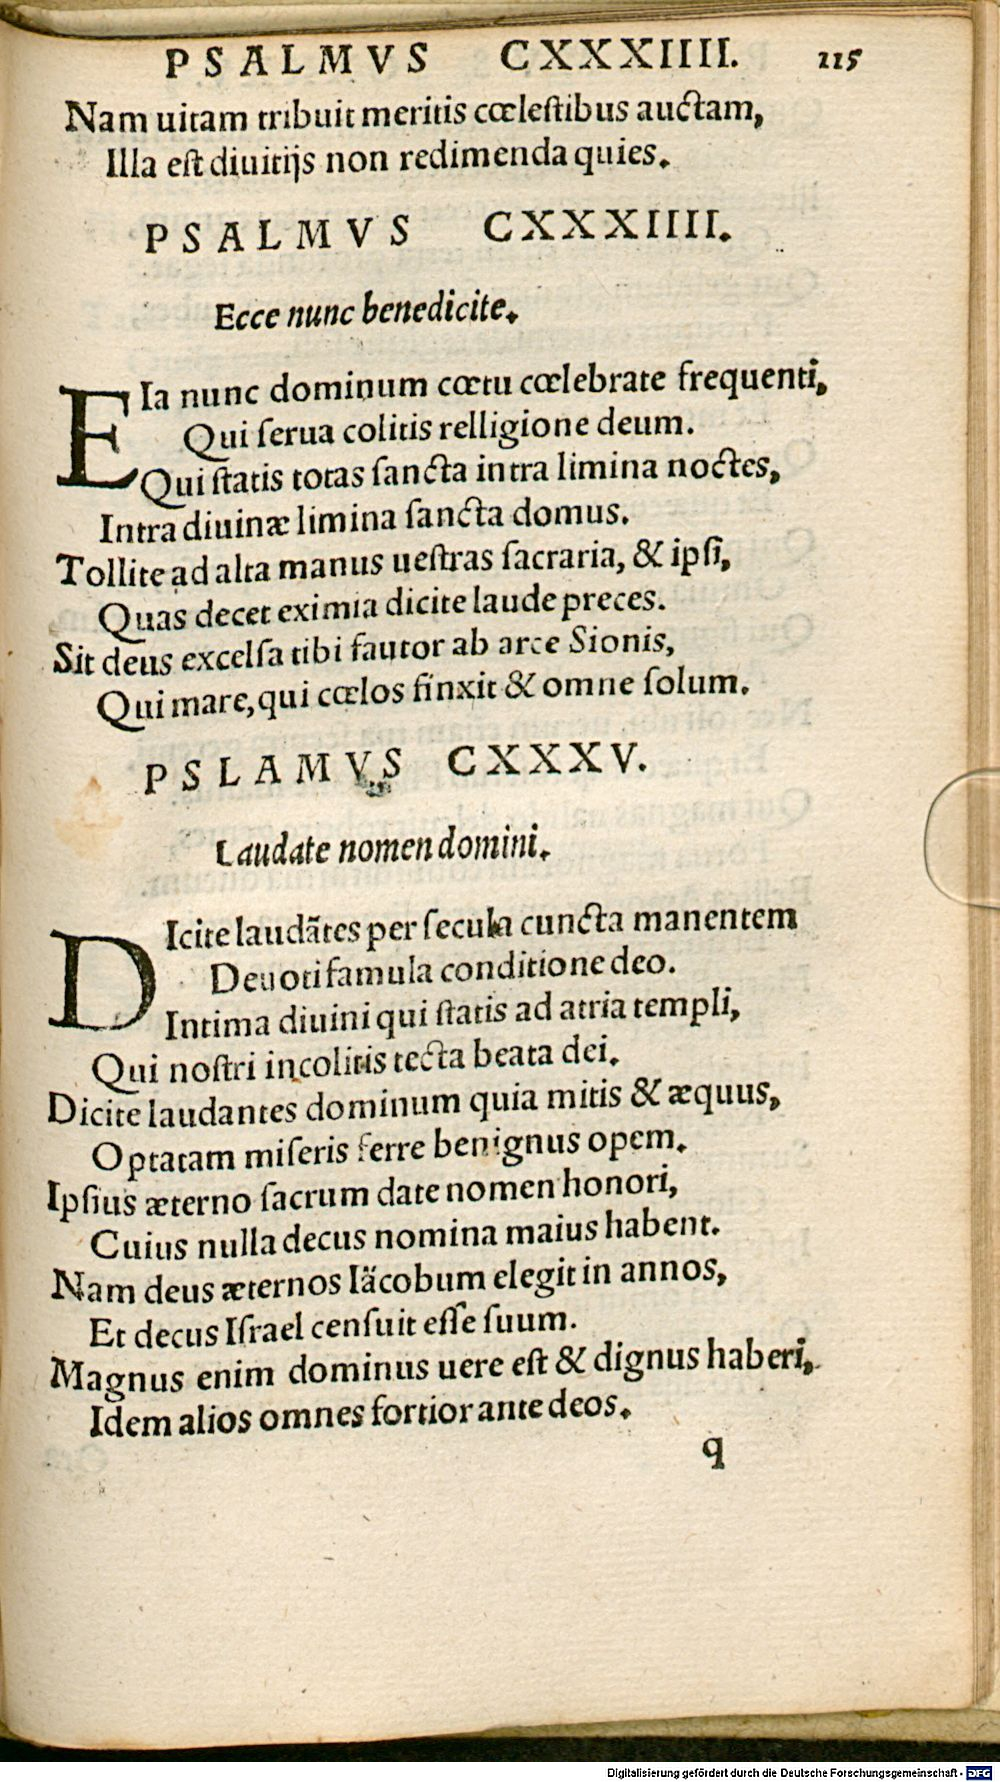 PSALMVS CXXXIIII. 115
Nam uitam tribuit meritis cœlestibus auctam,
Illa est diuitijs non redimenda quies.
PSALMVS CXXXIIII.
Ecce nunc benedicite.
EIa nunc dominum cœtu cœlebrate frequenti,
Qui serua colitis relligione deum.
Qui statis totas sancta intra limina noctes,
Intra diuinæ limina sancta domus.
Tollite ad alta manus uestras sacraria, & ipsi,
Quas decet eximia dicite laude preces.
Sit deus excelsa tibi fautor ab arce Sionis,
Qui mare, qui cœlos finxit & omne solum.
PSLAMVS CXXXV.
Laudate nomen domini.
DIcite laudãtes per secula cuncta manentem
Deuoti famula conditione deo.
Intima diuini qui statis ad atria templi,
Qui nostri incolitis tecta beata dei.
Dicite laudantes dominum quia mitis & æquus,
Optatam miseris ferre benignus opem.
Ipsius æterno sacrum date nomen honori,
Cuius nulla decus nomina maius habent.
Nam deus æternos Iäcobum elegit in annos,
Et decus Israel censuit esse suum.
Magnus enim dominus uere est & dignus haberi,
Idem alios omnes fortior ante deos.
q
Digitalisierung gefördert durch die Deutsche Forschungsgemeinschaft - DFG